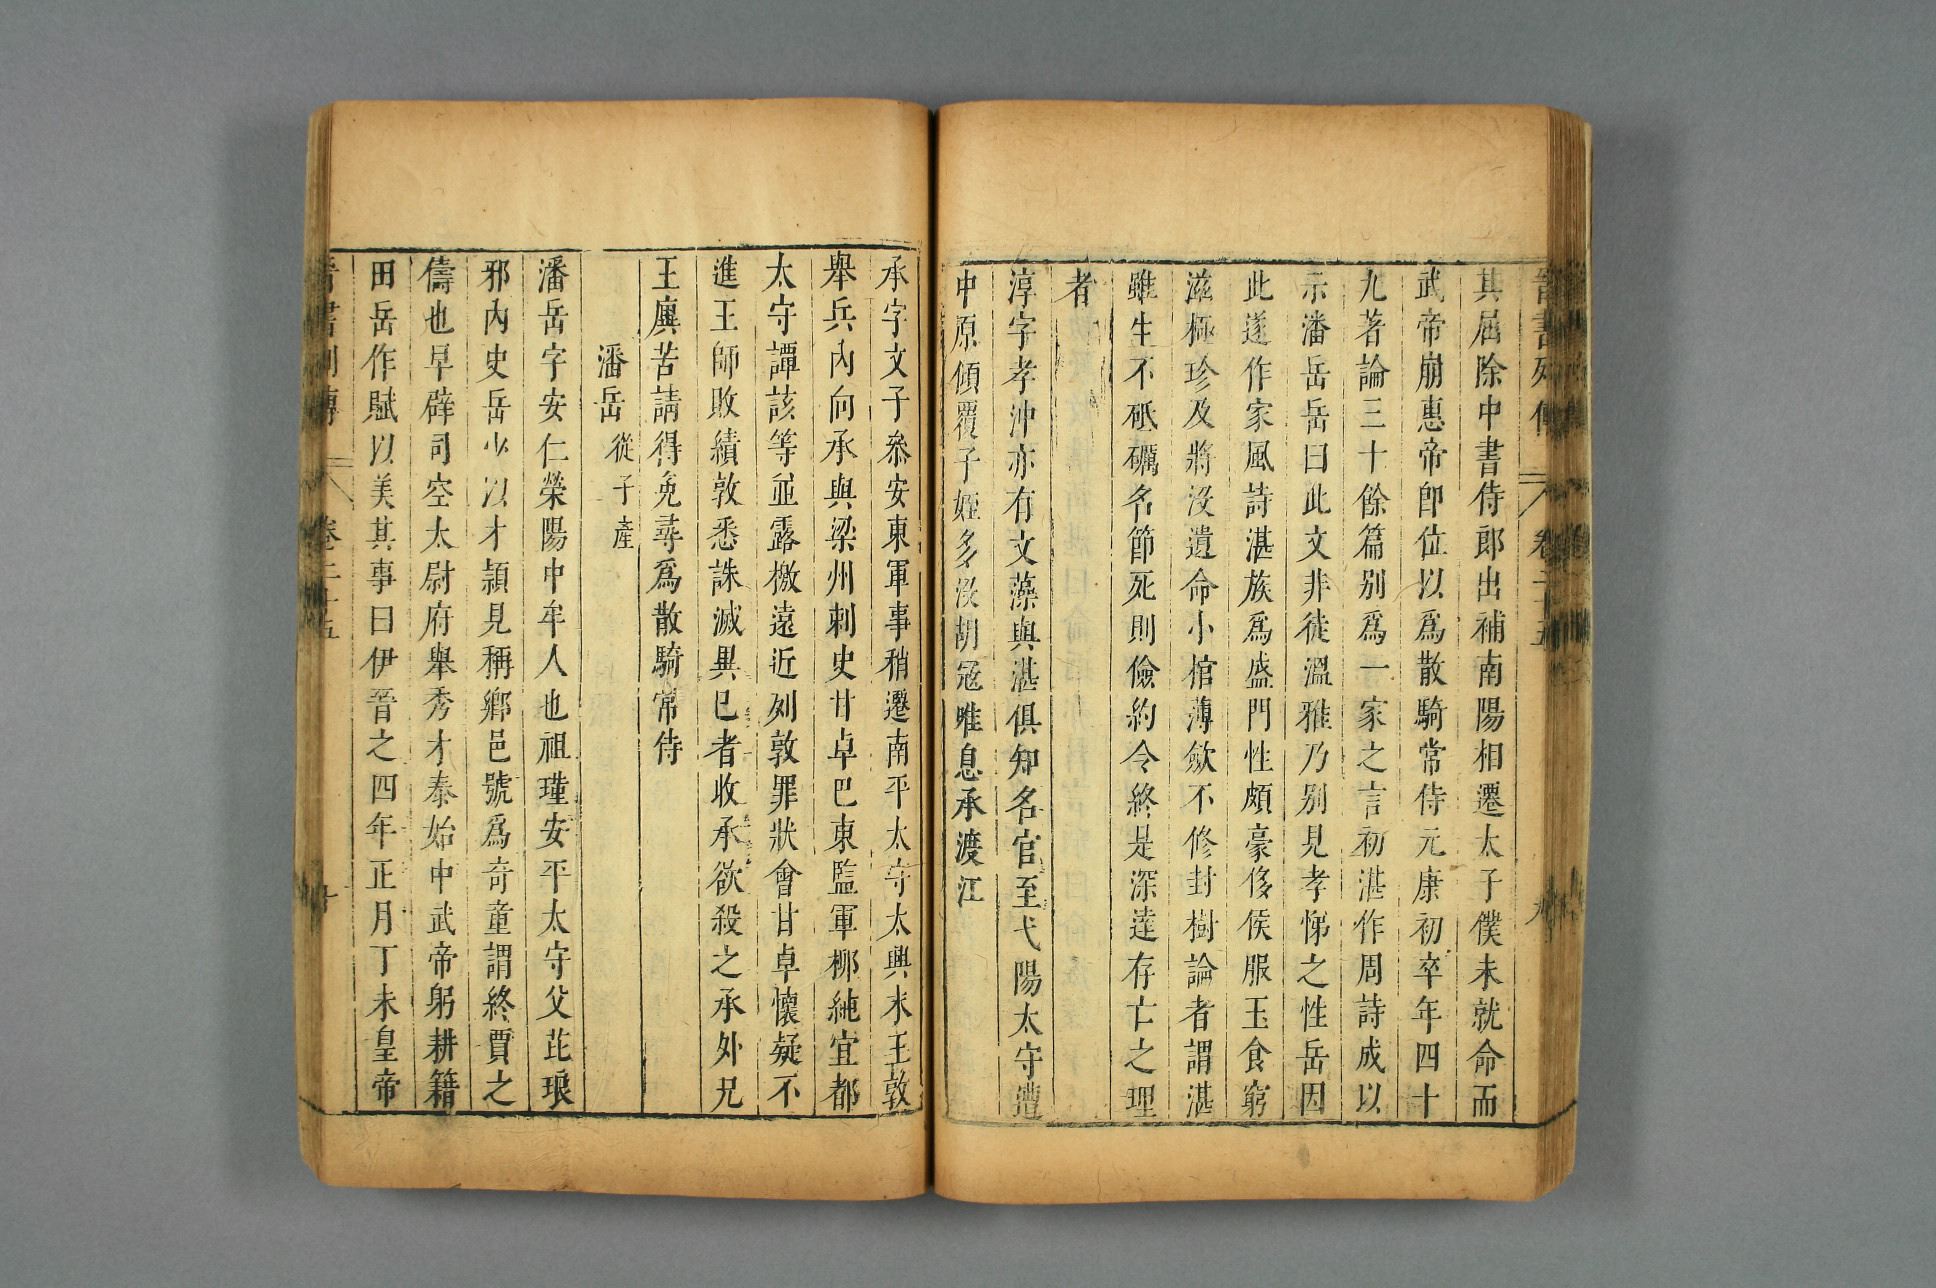 晉書列傳 卷二十五 九
其屈除中書侍郎出補南陽相遷太子僕未就命而
武帝崩惠帝卽位以爲散騎常侍元康初卒年四十
九著論三十餘篇別爲一家之言初湛作周詩成以
示潘岳岳曰此文非徒溫雅乃別見孝悌之性岳因
此遂作家風詩湛族爲盛門性頗豪侈侯服玉食窮
滋極珍及將沒遺命小棺薄斂不修封樹論者謂湛
雖生不砥礪名節死則儉約令終是深達存亡之理
者
淳字孝沖亦有文藻與湛俱知名官至弋陽太守遭
中原傾覆子姪多沒胡寇唯息承渡江
承字文子叅安東軍事稍遷南平太守太興末王敦
舉兵內向承與梁州刺史甘卓巴東監軍柳純宜都
太守譚該等並露檄遠近列敦罪狀會甘卓懷疑不
進王師敗績敦悉誅滅異己者收承欲殺之承外兄
王廙苦請得免尋爲散騎常侍
潘岳 從子產
潘岳字安仁滎陽中牟人也祖瑾安平太守父芘琅
邪內史岳少以才穎見稱鄉邑號爲奇童謂終賈之
儔也早辟司空太尉府舉秀才泰始中武帝躬耕籍
田岳作賦以美其事曰伊晉之四年正月丁未皇帝
晉書列傳 卷二十五 十